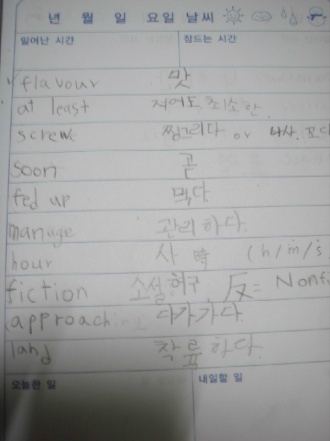 년 월 일 요일 날씨
일어난 시간 잠드는 시간
flavour 맛
at least 적어도, 최소한,
screw 찡그리다 or 나사,
soon 곧
fed up 먹다
manage 관리하다.
hour 시 時 (h/m/s
fiction 소설허구, 反= Nonfi
approach 다가가다.
land 착륙하다.
오늘한 일 내일할 일